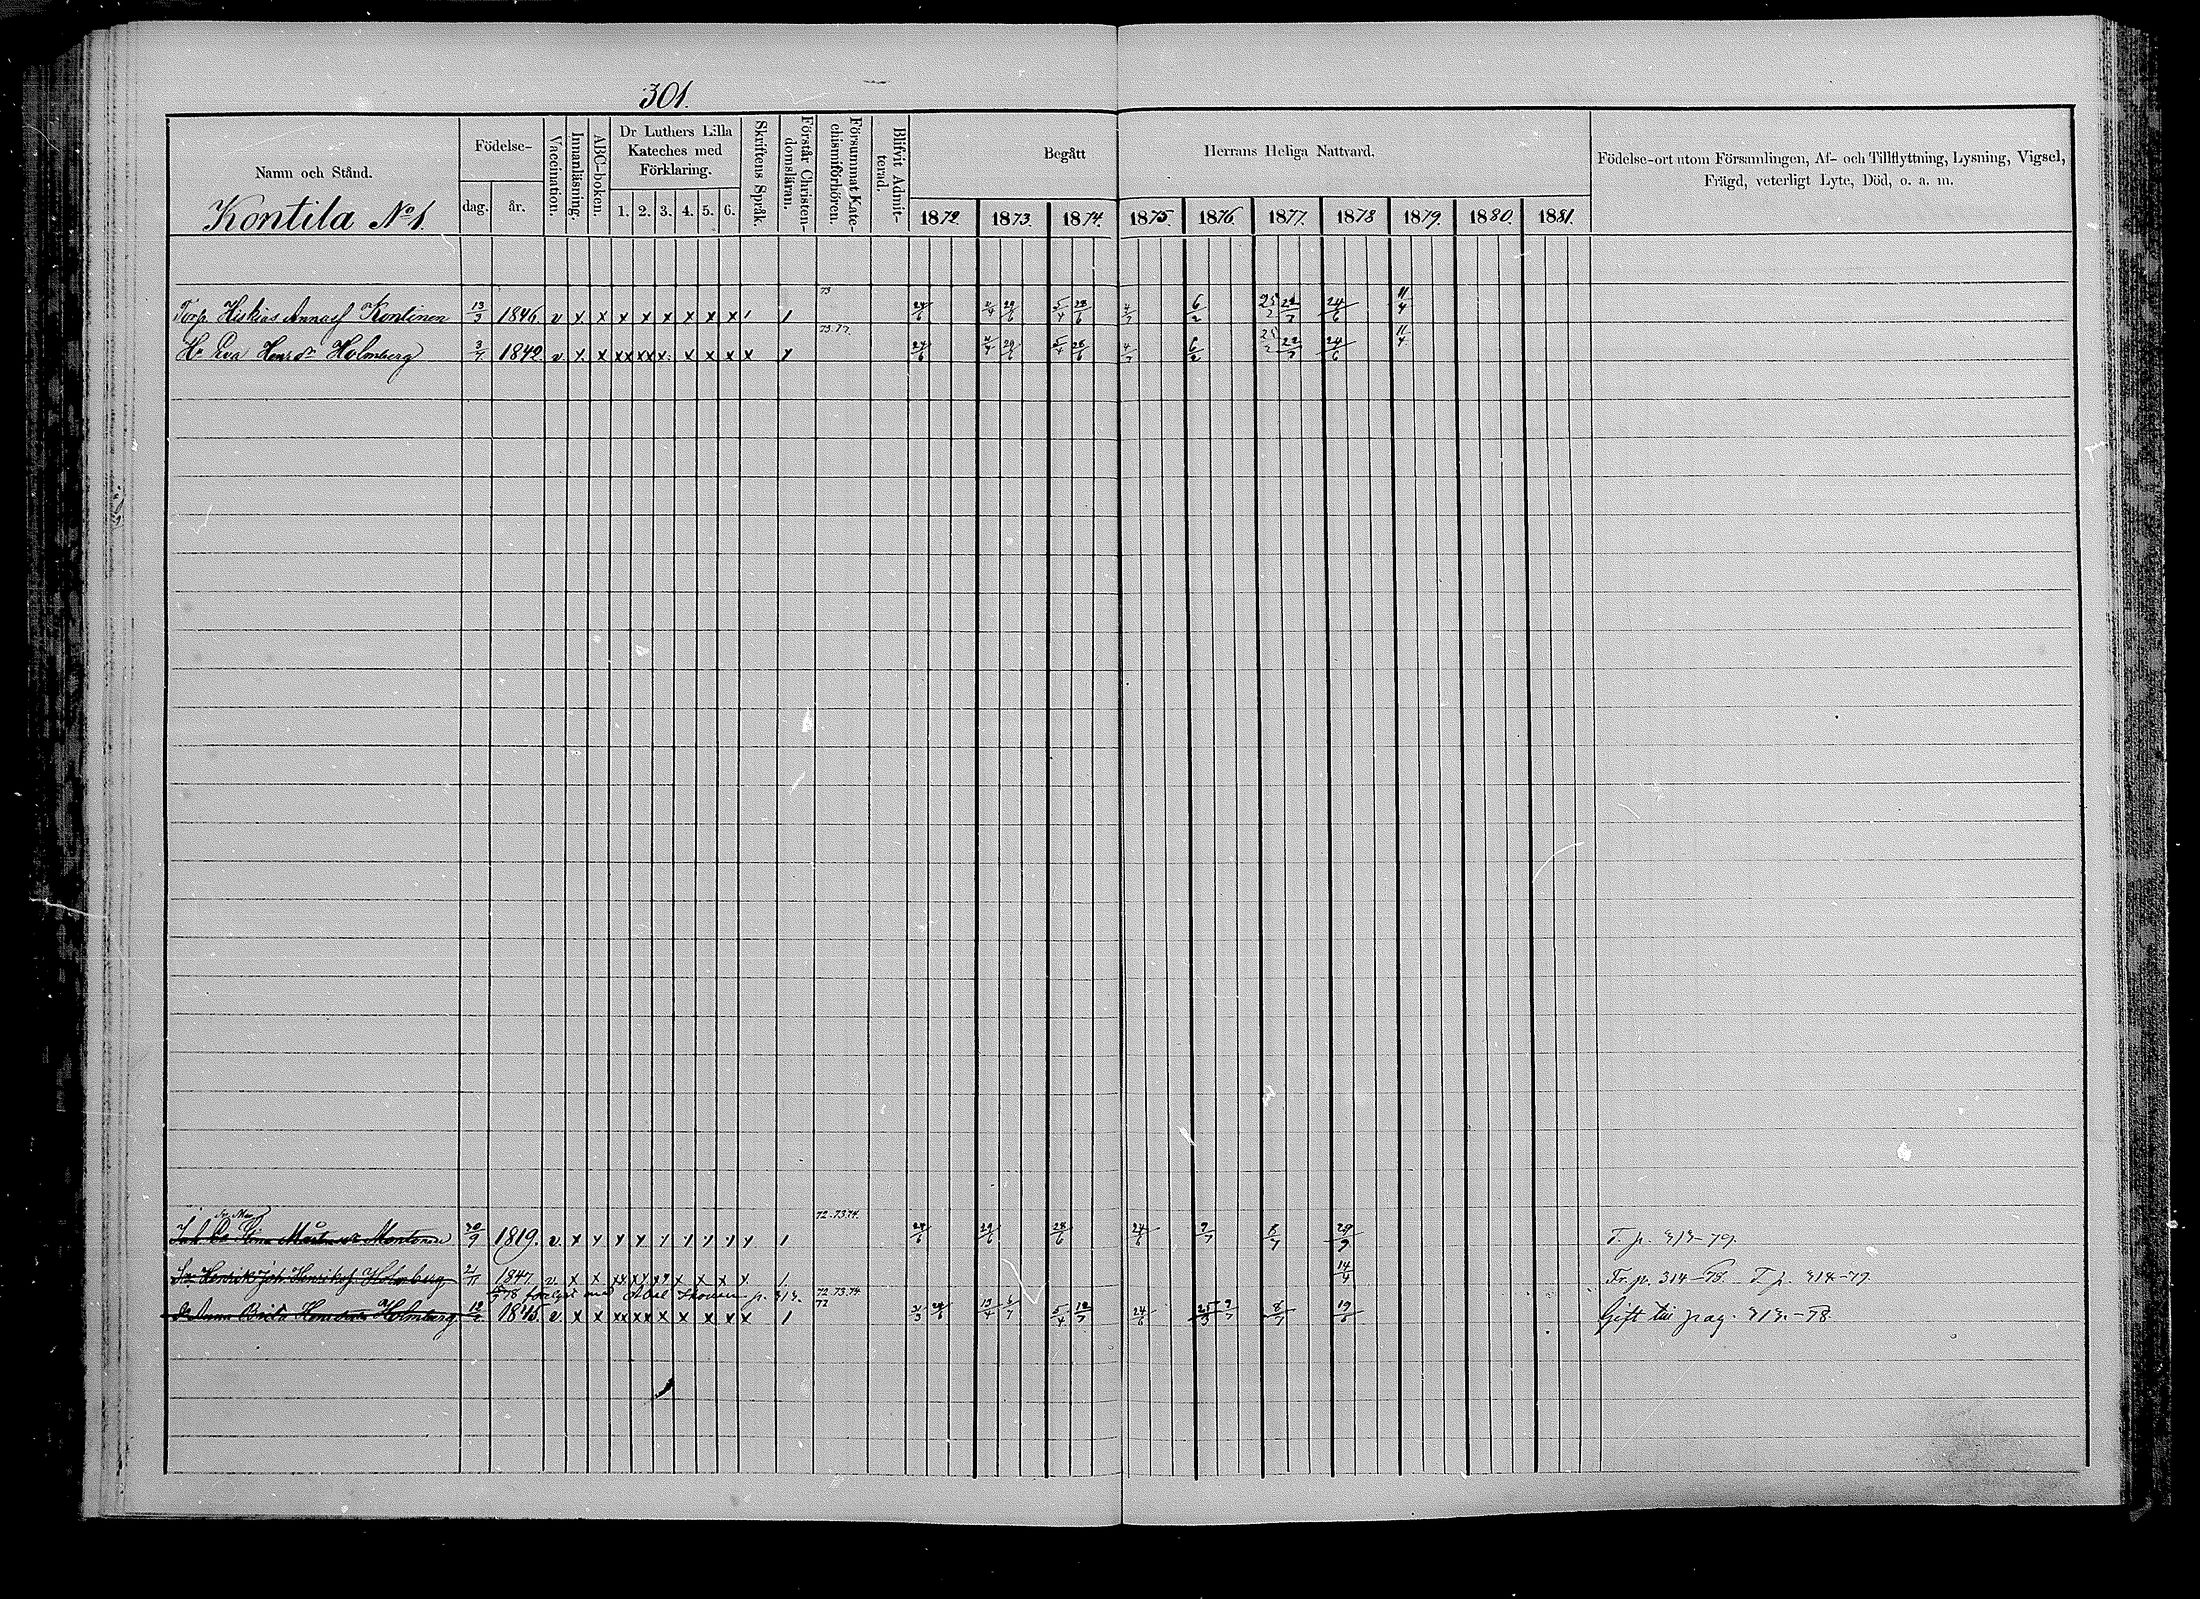 301.
Namn och Stånd.
Kontila No 1.
Födelse-
dag.
år.
Vaccination.
Innanläsning.
ABC-boken.
Dr Luthers Lilla
Kateches med
Förklaring.
1. 2. 3. 4. 5. 6.
Skriftens Språk.
Förstår Christen-
domsläran.
Försummat Kate-
chismiförhören.
Blifvit Admit-
terad.
Begått Herrans Heliga Nattvard.
1872. 1873. 1874. 1875. 1876 1877. 1878 1879. 1880. 1881.
Födelse-ort utom Församlingen, Af- och Tillflyttning, Lysning, Vigsel,
Frägd, veterligt Lyte, Död, o. a. m.
73
Torp. Hiskias Kontinen 13/3 1846 v x x x x x x x x 1 1 24/6 29/6 5/4 28/6 6/2 25/2 22/7 24/6 11/4
73.77.
Hu Eva Henrsdr Holmberg 3/7 1842 v x x xx xx x x x x x 24/6 29/6 5/4 28/6 4/7 6/2 25/2 22/7 24/6 11/4
72.73.74.
Stina Montonen 1819. v. x x x x x x x x x 1 24/6 29/6 28/6 24/6 9/7 8/7 29/9 T. p. 313-79.
Sn Henrik Joh. Henriksf Holmberg 21/11 1847. v. x x xx xx xx x x x x 1 14/4 Fr. p. 314-78. T. p. 314-79.
78 Abel p. 313. 72.73.74
72
Anna Brita Henrsdr Holmberg 1845. v. x x xx xx x x x x x 1 31/3 5/4 12/7 24/6 25/3 9/7 8/7 19/6 Gift till pag. 313.-78.